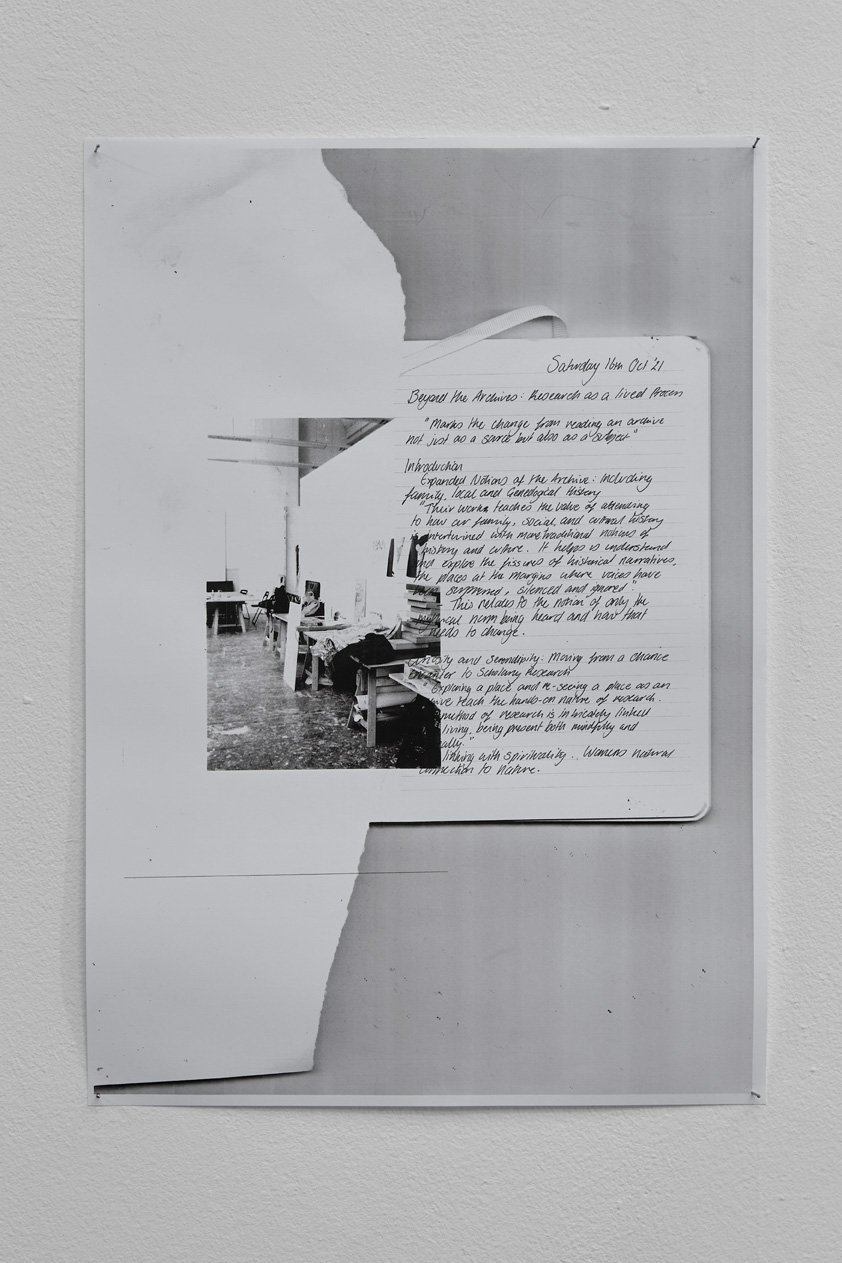 Saturday 16th Oct '21
Beyond the Archives: Research as a lived Process
"Marks the change from reading an archive
not just as a source but also as a subject"
Introduction
Expanded Notions of the Archive: Including
family, local and Geneological History
"Their works teaches the value of attending
to how our family, social, and cultural history
is intertwined with more traditional notions of
history and culture. It helps us understand
and explore the fissures of historical narratives,
the places at the margins where voices have
been suppressed, silenced and ignored."
This relates to the notion of only the
norm being heard and how that
needs to change.
Curiosity and Serendipity: Moving from a chance
Encounter to Scholarly Research
Exploring a place and re-seeing a place as an
teach the hands-on nature of research.
method of research is intricately linked
living, being present both mindfully and
linking with spirituality.. Womens natural
connection to nature.